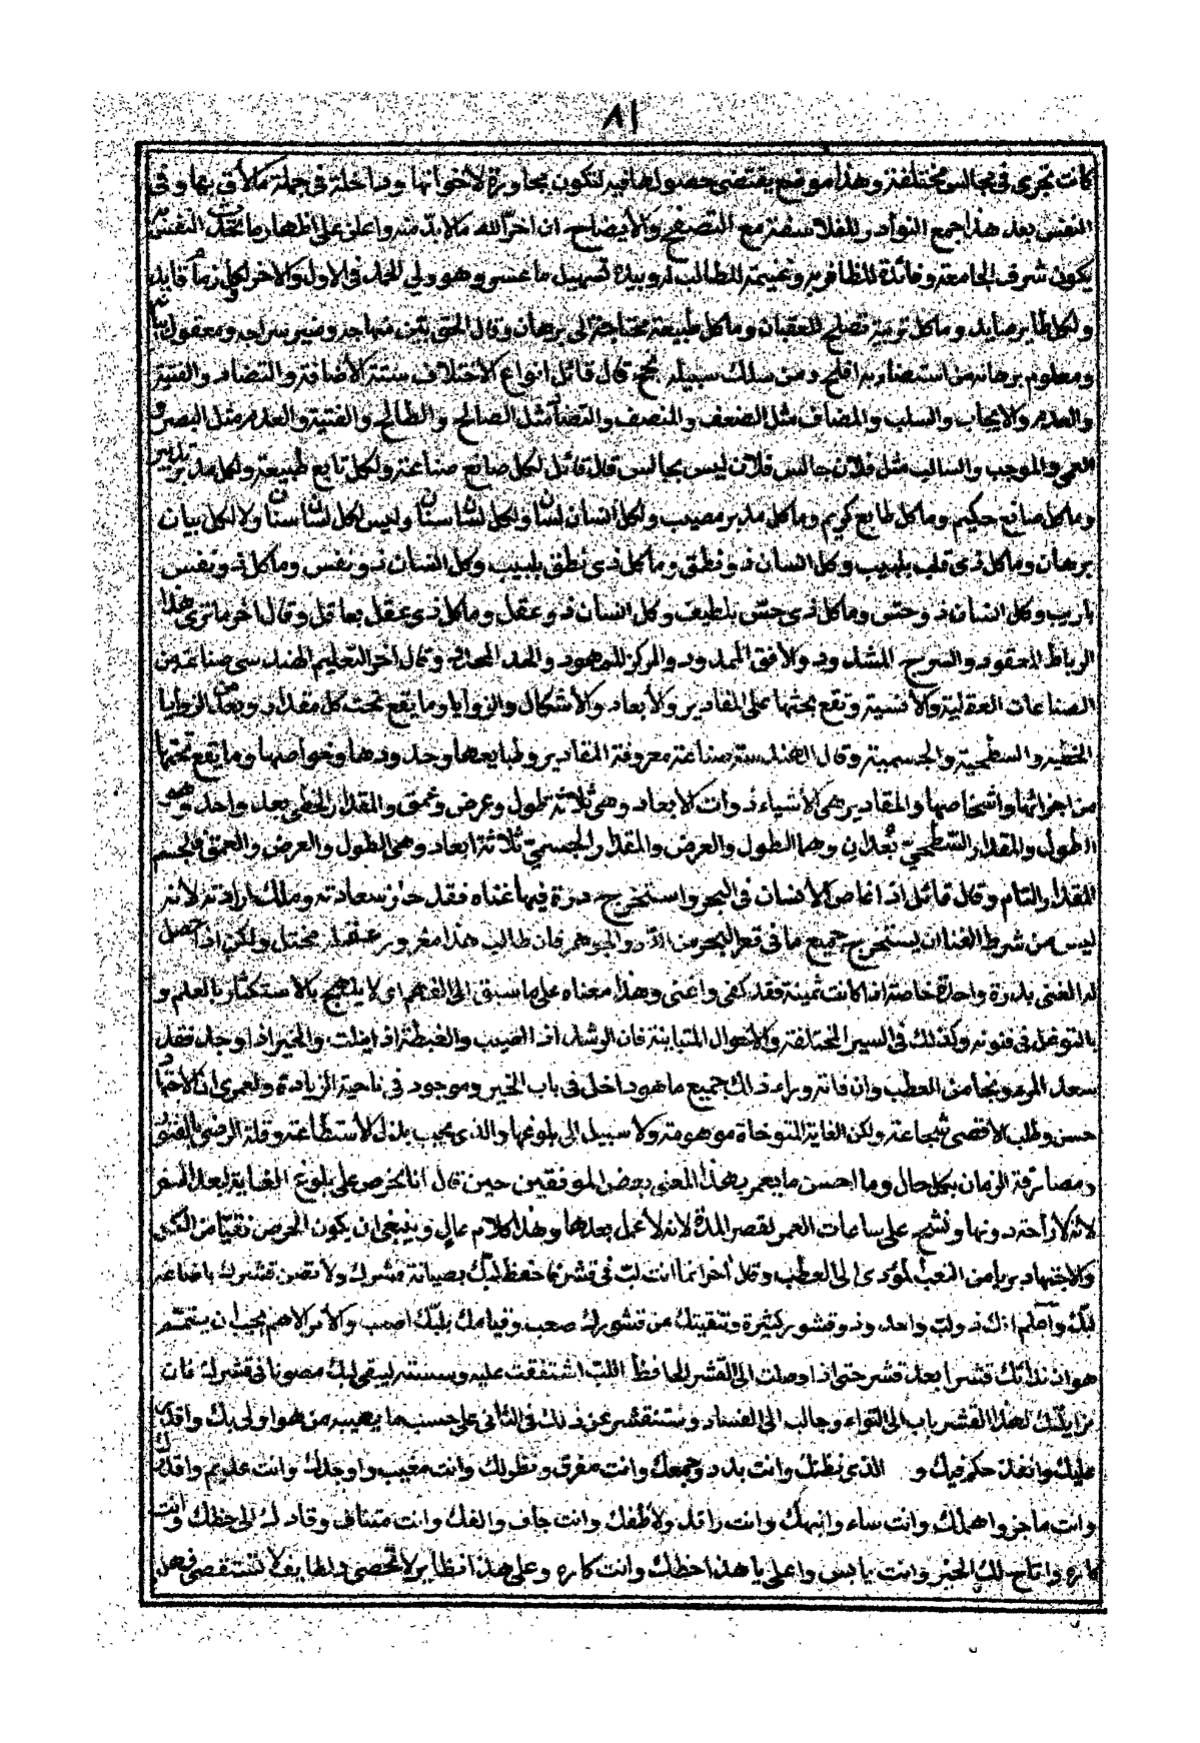 ٨١
كانت تجرى في مجالس مختلفة وهذا موضع يقتضى حصولها فيه لتكون مجاورة لأخواتها وداخلة في جملة ما لاق بها وفى
النفس بعد هذا جمع النوادر للفلاسفة مع التصفح والأيضاح ان اخر الله ما لا بد منه واعان على اظهار ما تحدث النفس به
يكون شرف الجامعة وفائدة للظافر به وغنيمة للطالب له وبيده تسهيل ما عسر وهو ولي الحمد في الاول والاخر لكل زمان قايد
ولكل طاير صايد وما كل تربة تصلح للعقبان وما كل طبيعة محتاجة الى برهان وقال الحق بيّن منهاجه ومنير سراجه ومعقول بيانه
ومعلوم برهانه من استضاء به افلح ومن سلك سبيله نجح قال قائل انواع الأختلاف ستة الأضافة والتضاد والقنية
والعدم والايجاب والسلب والمضاف مثل الضعف والمنصف والتضاد مثل الصالح والطالح والقنية والعدم مثل البصر و
العمى والموجب والسالب مثل فلان جالس فلان ليس بجالس قال قائل لكل صانع صناعة ولكل تابع طبيعة ولكل مدبر تدبير
وما كل صانع حكيم وما كل طابع كريم وما كل مدبر مصيب ولكل انسان لسان ولكل لسان سنان وليس لكل لسان سنان ولا لكل بيان
برهان وما كل ذى قلب بلبيب وكل انسان ذو نطق وما كل ذى نطق بلبيب وكل انسان ذو نفس وما كل ذو نفس
باريب وكل انسان ذو حسّ وما كل ذى حسّ بلطيف وكل انسان ذو عقل وما كل ذى عقل بعاقل وقال اخر ما ترى هذا
الرباط المعقود والسرح المشدود والأفق الممدود والمركز الممهود والحد المحدد وقال اخر التعليم الهندسى صناعة من
الصناعات العقلية والأنسية وتقع بحثها على المقادير والأبعاد والأشكال والزوايا وما يقع تحت كل مقدار وبعد من الزوايا
الخطية والسطحية والجسمية وقال الهندسة صناعة معروفة المقادير وطبايعها وحدودها وخواصها وما يقع تحتها
من اجزائها واشخاصها والمقادير هى الأشياء ذوات الأبعاد وهى ثلاثة طول وعرض وعمق والمقدار الخطى بعد واحد وهو
الطول والمقدار السّطحيّ بُعدان وهما الطول والعرض والمقدار الجسميّ ثلاثة ابعاد وهى الطول والعرض والعمق فالجسم
المقدار التام وقال قائل اذا غاص الأنسان في البحر واستخرج درة فيها غناه فقد حاز سعادته وملك ارادته لأنه
ليس من شرط الغنا ان يستخرج جميع ما في قعر البحر من الدّر والجوهر فان طالب هذا مغرور عقله مختل ولكن اذا حصل
له الغنى بدرة واحدة خاصة اذا كانت ثمينة فقد كفى واغنى وهذا معناه على ما سبق الى الفهم اى لا يلهج بالأستكثار بالعلم و
بالتوغل في فنونه وكذلك في السير المختلفة والأحوال المتباينة فان الرشد اذا اصيب والغبطة اذا نيلت والخير اذا وجد فقد
سعد المرء ونجا من العطب وان فاته وراء ذلك جميع ما هو داخل في باب الخير وموجود في ناحية الزيادة ولعمرى ان الأجتهاد
حسن وطلب الأقصى شجاعة ولكن الغاية المتوخاة موهومة ولا سبيل الى بلوغها والذى يجب بذل الأستطاعة وقلة الرضى بالفتور
ومصارفة الزمان بكل حال وما احسن ما يعمر بهذا المعنى بعض الموفقين حين قال انا نحرص على بلوغ الغاية لبعد السفر
لأنه لا راحة دونها ونشح على ساعات العمر لقصر المدة لأنه لا عمل بعدها وهذا كلام عال وينبغى ان يكون الحرص نقيّا من الكدر
والاجتهاد بريا من التعب المؤدى الى العطب وقال اخر انما انت لبّ في قشر فاحفظ لبّك بصيانة قشرك ولا تصن قشرك باضاعة
لبّك واعلم انك ذو لبّ واحد وذو قشور كثيرة وتنقيتك من قشورك صعب وقيامك بلبّك اصعب والأمر الاهم يجب ان يتمّم
هو ان تداتك قشرا بعد قشر حتى اذا وصلت الى القشر الحافظ اللب اشتفقت عليه وسسته ليبقى لبك مصونا في قشرك فان
مزايلتك لهذا القشر باب الى التواء وجالب الى الفساد وستنقشر عن ذلك في الثانى على حسب ما يصيبه من هو اولى بك واقدر
عليك وانفذ حكم فيك و الذى نظمك وانت بدد وجمعك وانت مفرق ونظر لك وانت مغيب واوجدك وانت عديم واقدرك
وانت عاجز واهملك وانت ساه وانبهك وانت راقد ولأطفك وانت جاف والفك وانت متناف وقادك الى حظك وانت
كاره واتاح لك الخير وانت يابس واعلى يا هذا حظك وانت كاره وعلى هذا نظاير لا تحصى ولطايف لا تستقصى فهل